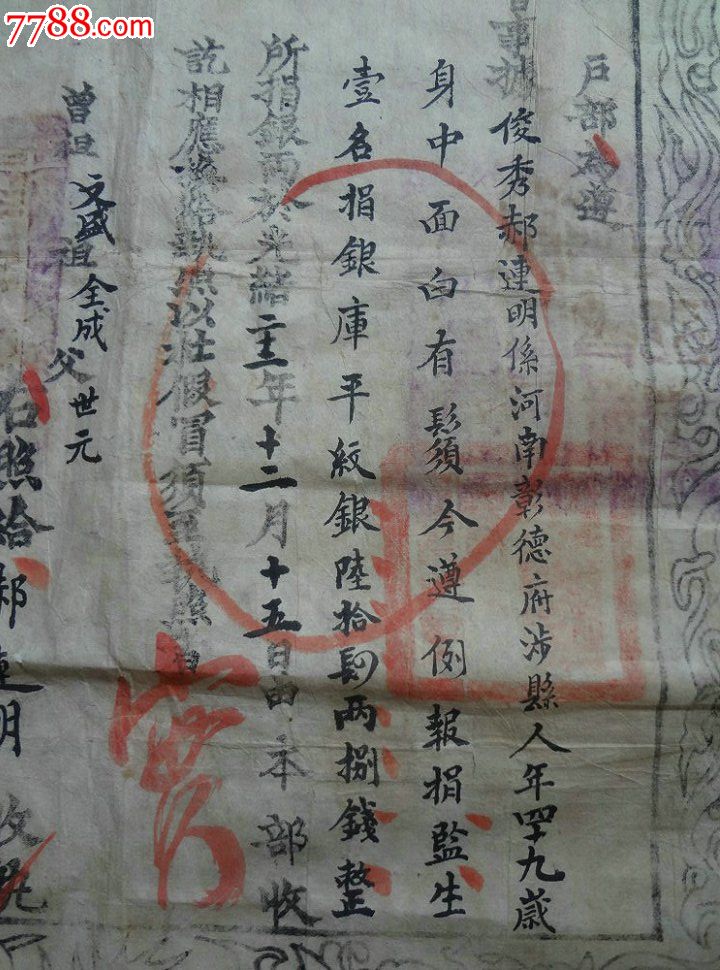 7788.com
戶部為遵
事据俊秀郝連明係河南彰德府涉縣人年四十九歲
身中面白有鬚今遵例報捐監生
壹名捐銀庫平紋銀陸拾肆兩捌錢整
所捐銀兩於光緒 年十二月十五日由本部收
訖相應 執照以杜假冒須至執照者
曾祖文盛祖全成父世元
右照給郝連明收執
實